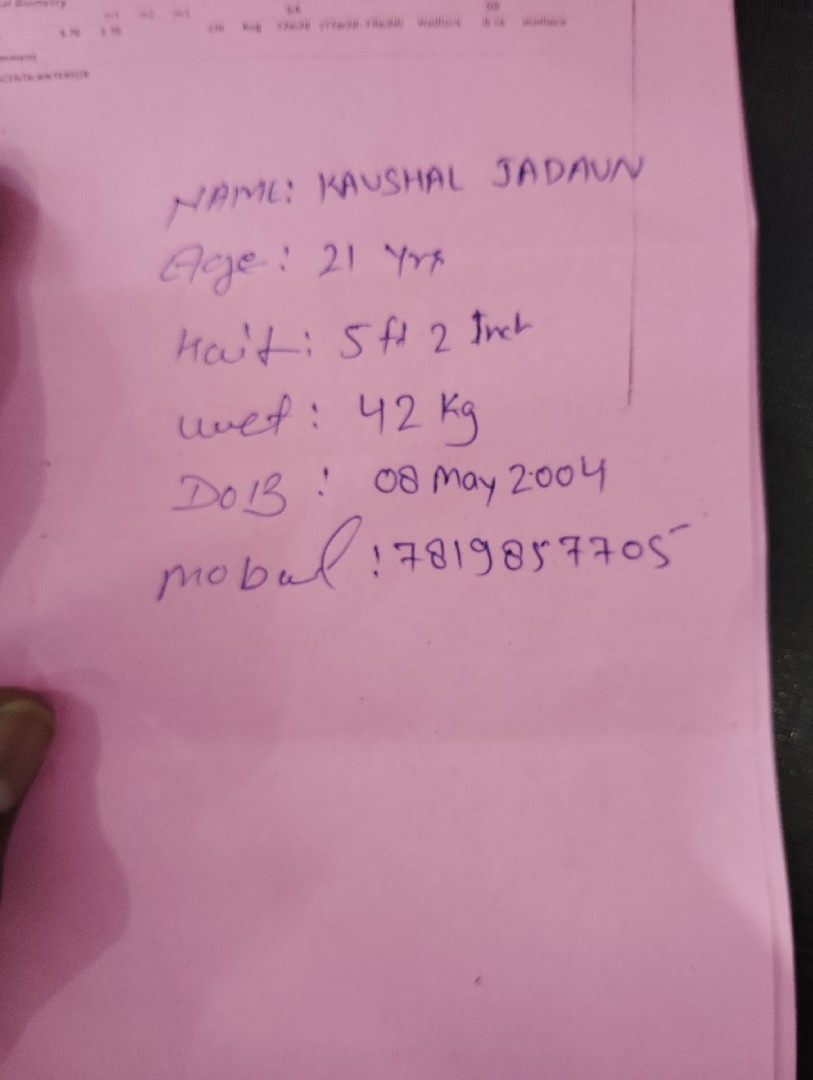 al Biometry
NAME: KAUSHAL JADAUN
Age: 21 Yrs
Hait: 5 ft 2 Inch
wet: 42 Kg
DOB: 08 May 2004
mobal: 7819857705